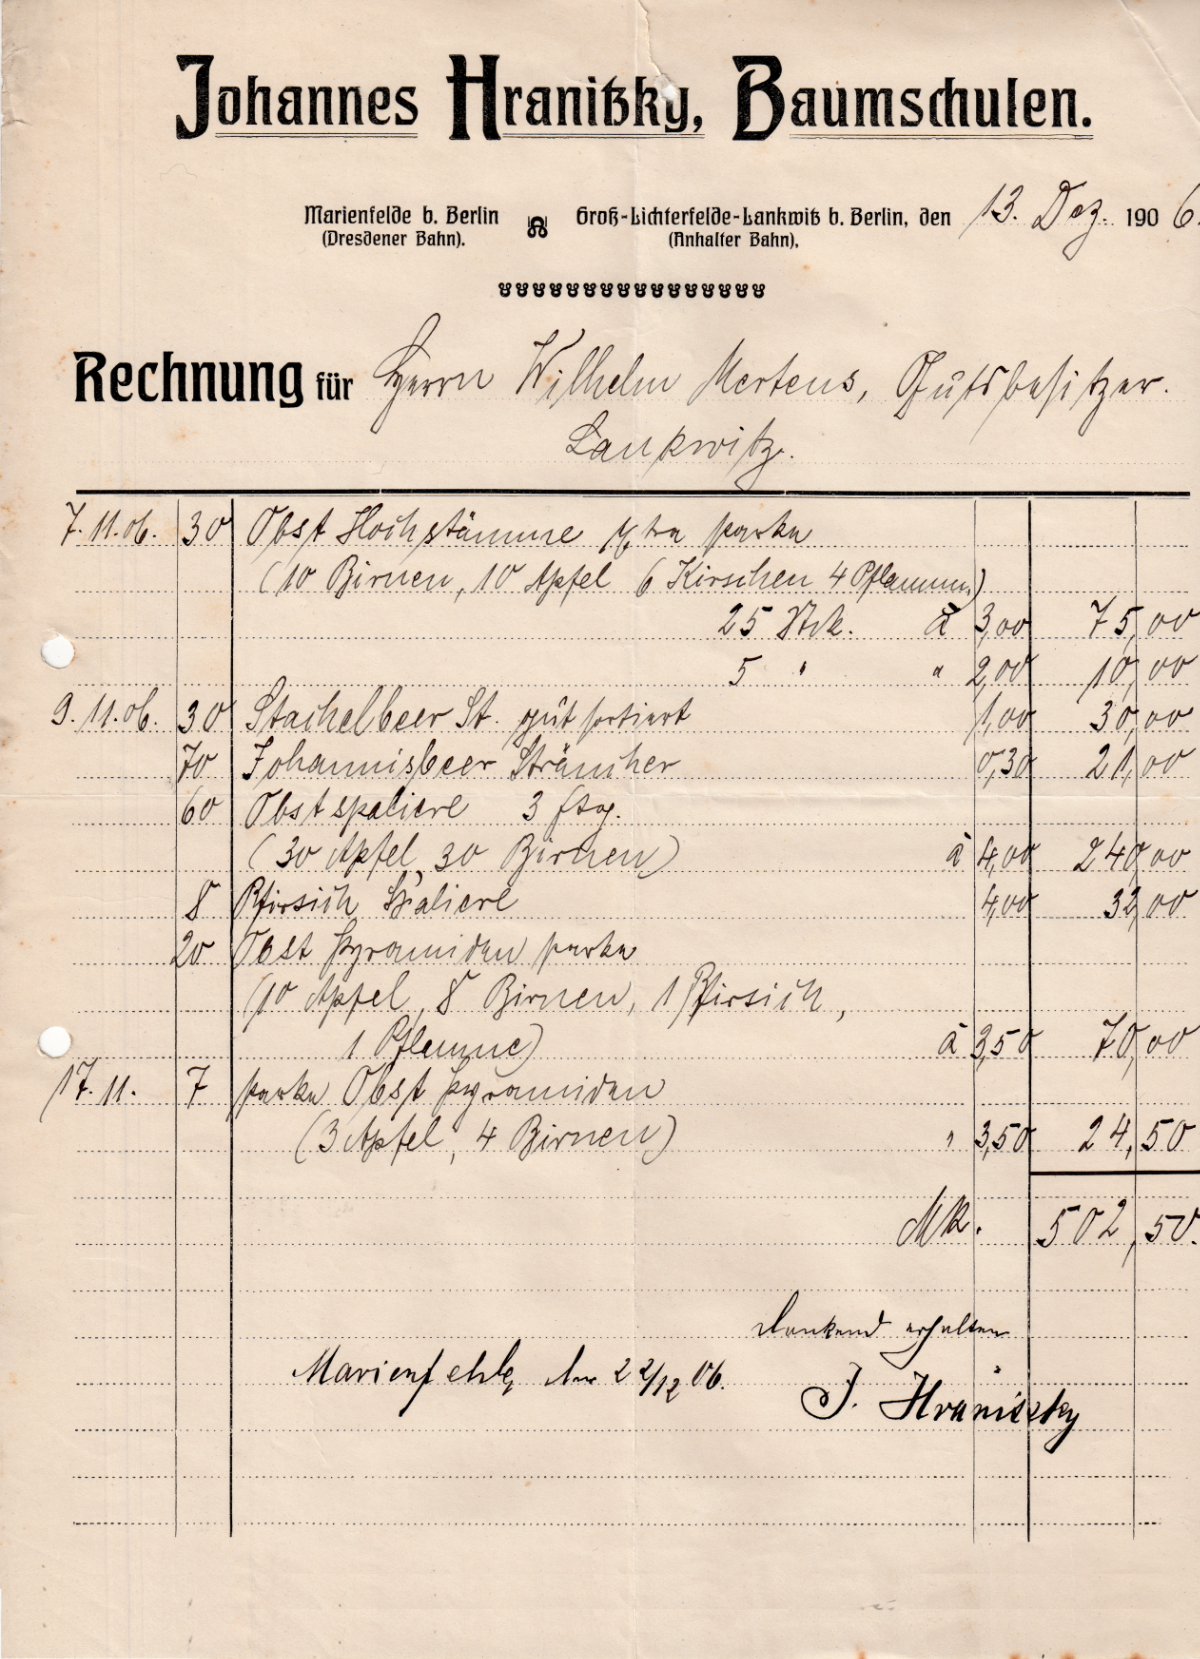 Johannes Hranitzky, Baumschulen.
Marienfelde b. Berlin
(Dresdener Bahn).
Groß-Lichterfelde-Lankwitz b. Berlin, den 13. Dez. 1906.
(Anhalter Bahn).
Rechnung für Herrn Wilhelm Mertens, Gutsbesitzer.
Lankwitz.
7.11.06. 30 Obst Hochstämme extra starke
(10 Birnen, 10 Apfel 6 Kirschen 4 Pflaumen)
25 Stck. à 3,00 75,00
5 " " 2,00 10,00
9.11.06. 30 Stachelbeer St. gut sortiert 1,00 30,00
70 Johannisbeer Sträucher 0,30 21,00
60 Obstspaliere 3 Etag.
(30 Apfel, 30 Birnen) à 4,00 240,00
8 Pfirsich Spaliere 4,00 32,00
20 Obst Pyramiden starke
(10 Apfel, 8 Birnen, 1 Pfirsich,
1 Pflaume) à 3,50 70,00
17.11. 7 starke Obst Pyramiden
(3 Apfel, 4 Birnen) " 3,50 24,50
Mk. 502,50.
Dankend erhalten
Marienfelde, den 22/12 06.
J. Hranitzky